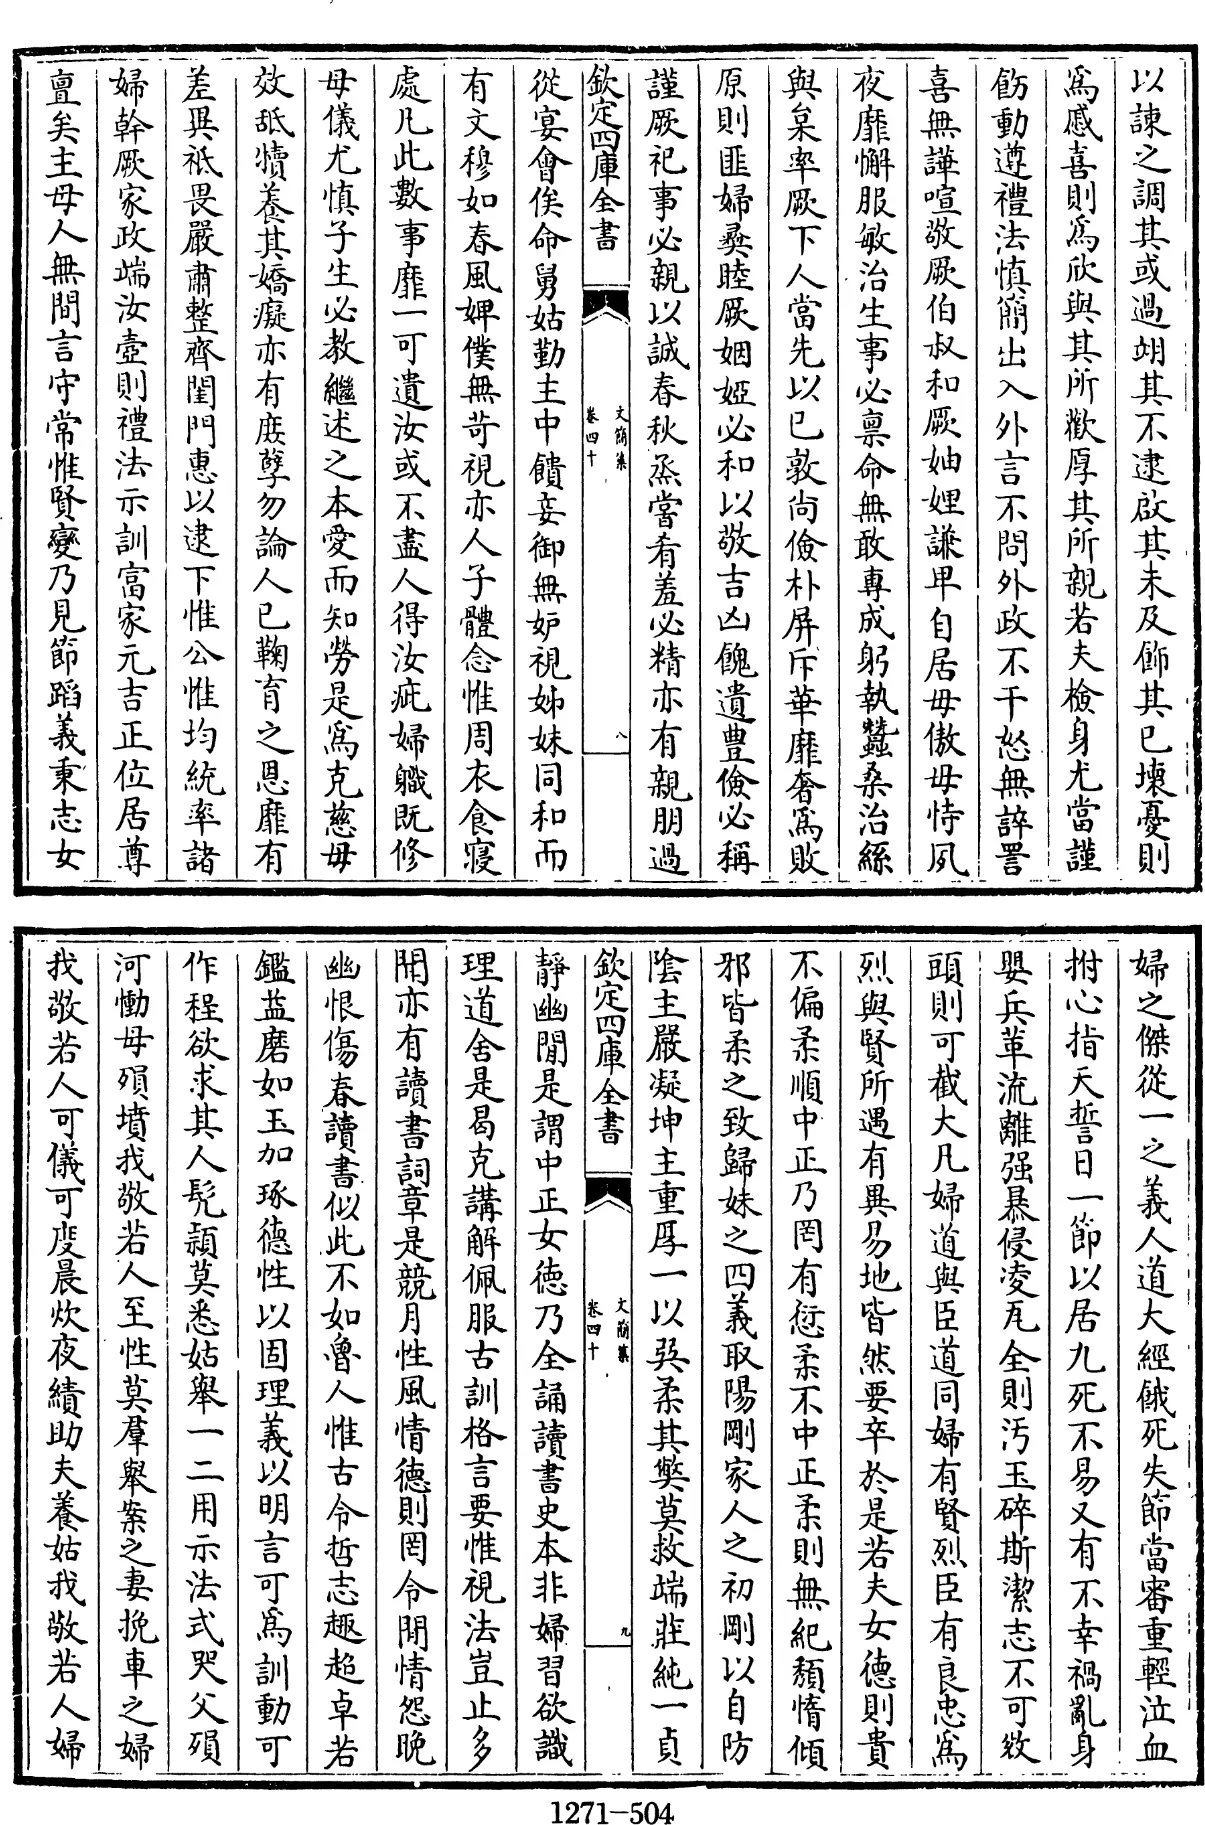 以諫之調其或過翊其不逮啟其未及飾其已壞憂則
爲慼喜則爲欣與其所歡厚其所親若夫檢身尤當謹
飭動遵禮法慎簡出入外言不問外政不干怒無誶詈
喜無譁喧敬厥伯叔和厥妯娌謙卑自居毋傲毋恃夙
夜靡懈服敏治生事必禀命無敢專成躬執蠶桑治絲
與枲率厥下人當先以已敦尚儉朴屏斥華靡奢爲敗
原則匪婦彛睦厥姻婭必和以敬吉凶餽遺豊儉必稱
謹厥祀事必親以誠春秋烝嘗肴羞必精亦有親朋過
欽定四庫全書
文簡集
卷四十
八
從宴會俟命舅姑勤主中饋妾御無妒視姊妹同和而
有文穆如春風婢僕無苛視亦人子體念惟周衣食寢
處凡此數事靡一可遺汝或不盡人得汝疵婦職既修
母儀尤慎子生必教繼述之本愛而知勞是爲克慈毋
效舐犢養其嬌癡亦有庻孽勿論人已鞠育之恩靡有
差異祗畏嚴肅整齊閨門惠以逮下惟公惟均統率諸
婦幹厥家政端汝壼則禮法示訓富家元吉正位居尊
亶矣主母人無間言守常惟賢變乃見節蹈義秉志女
婦之傑從一之義人道大經餓死失節當審重輕泣血
拊心指天誓日一節以居九死不易又有不幸禍亂身
嬰兵革流離强暴侵凌瓦全則汚玉碎斯潔志不可效
頭則可截大凡婦道與臣道同婦有賢烈臣有良忠爲
烈與賢所遇有異易地皆然要卒於是若夫女德則貴
不偏柔順中正乃罔有愆柔不中正柔則無紀頹惰傾
邪皆柔之致歸妹之四義取陽剛家人之初剛以自防
陰主嚴凝坤主重厚一以巽柔其獘莫救端莊純一貞
欽定四庫全書
文簡集
卷四十
九
靜幽閒是謂中正女德乃全誦讀書史本非婦習欲識
理道舍是曷克講解佩服古訓格言要惟視法豈止多
聞亦有讀書詞章是競月性風情德則罔令閒情怨晚
幽恨傷春讀書似此不如魯人惟古令哲志趣超卓若
鑑益磨如玉加琢德性以固理義以明言可爲訓動可
作程欲求其人髡頴莫悉姑舉一二用示法式哭父殞
河慟母殞墳我敬若人至性莫羣舉案之妻挽車之婦
我敬若人可儀可度晨炊夜績助夫養姑我敬若人婦
1271-504